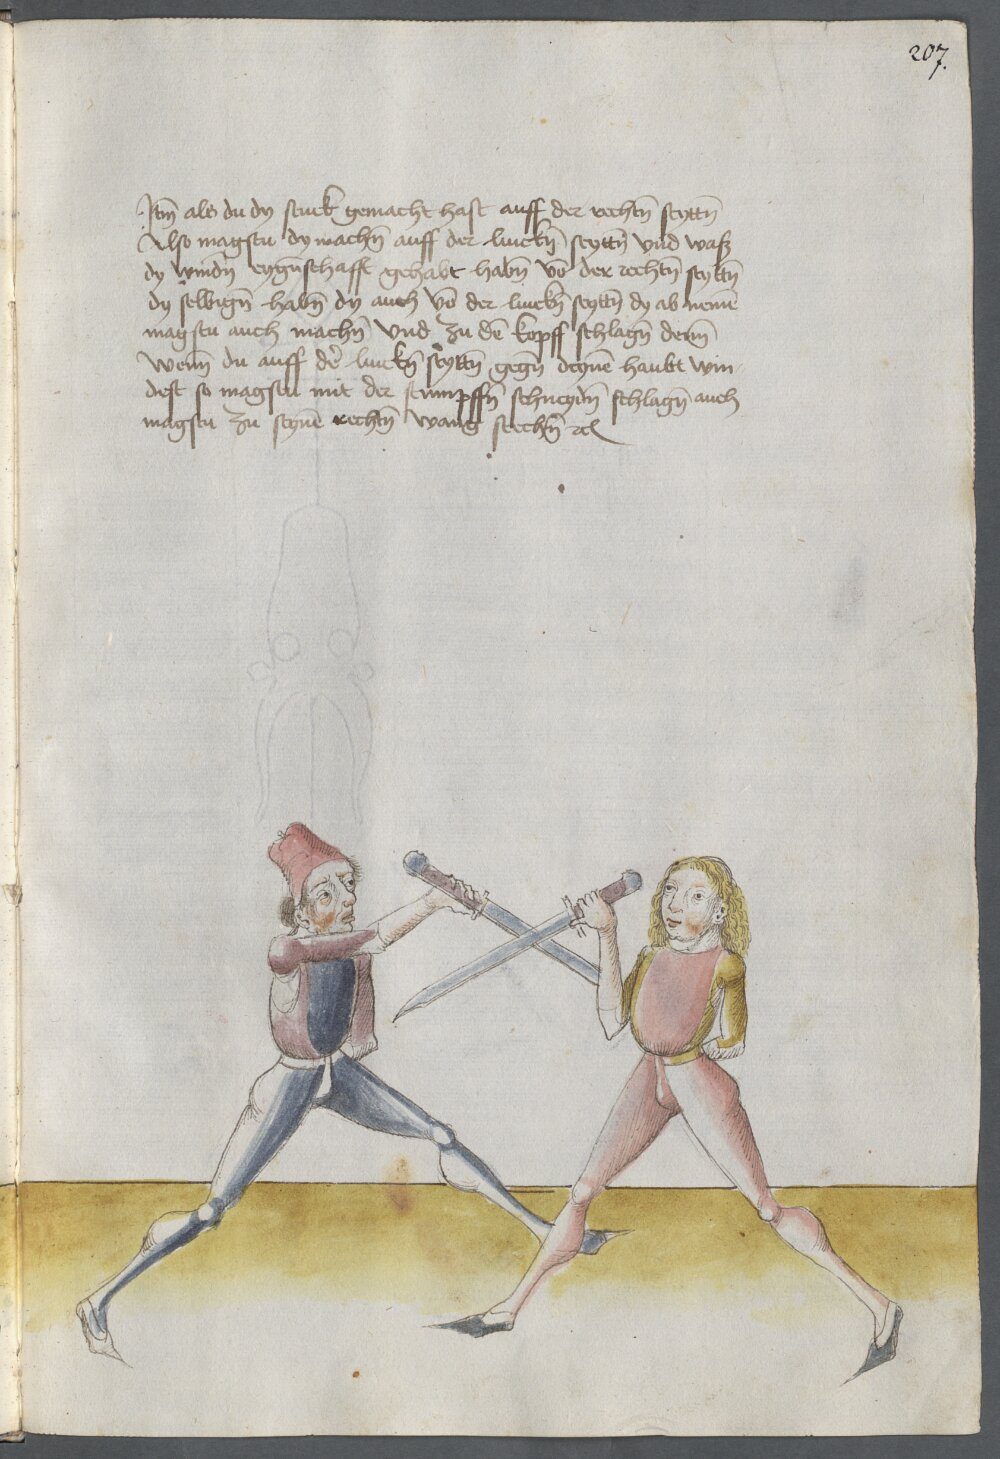 207.
Itm̄ als du dy stuck gemacht hast auff der rechtn̄ seyttn̄
Also magstu dy machn̄ auff der linckn̄ seyttn̄ vnd waß
dy windn̄ eygn̄schafft gehabt habn̄ vō der rechtn̄ seyttn̄
dy selbign̄ habn̄ dy auch vō der linckn̄ seyttn̄ dy ab nemē
magstu auch machn̄ vnd zu dē kopff schlagn̄ denn̄
wenn̄ du auff der̄ linckn̄ seyttn̄ gegn̄ deynē haubt win
dest so magstu mit der stumpffn̄ schneydn̄ schlagn̄ auch
magstu zu seynē rechtn̄ wang stechn̄ ꝛc